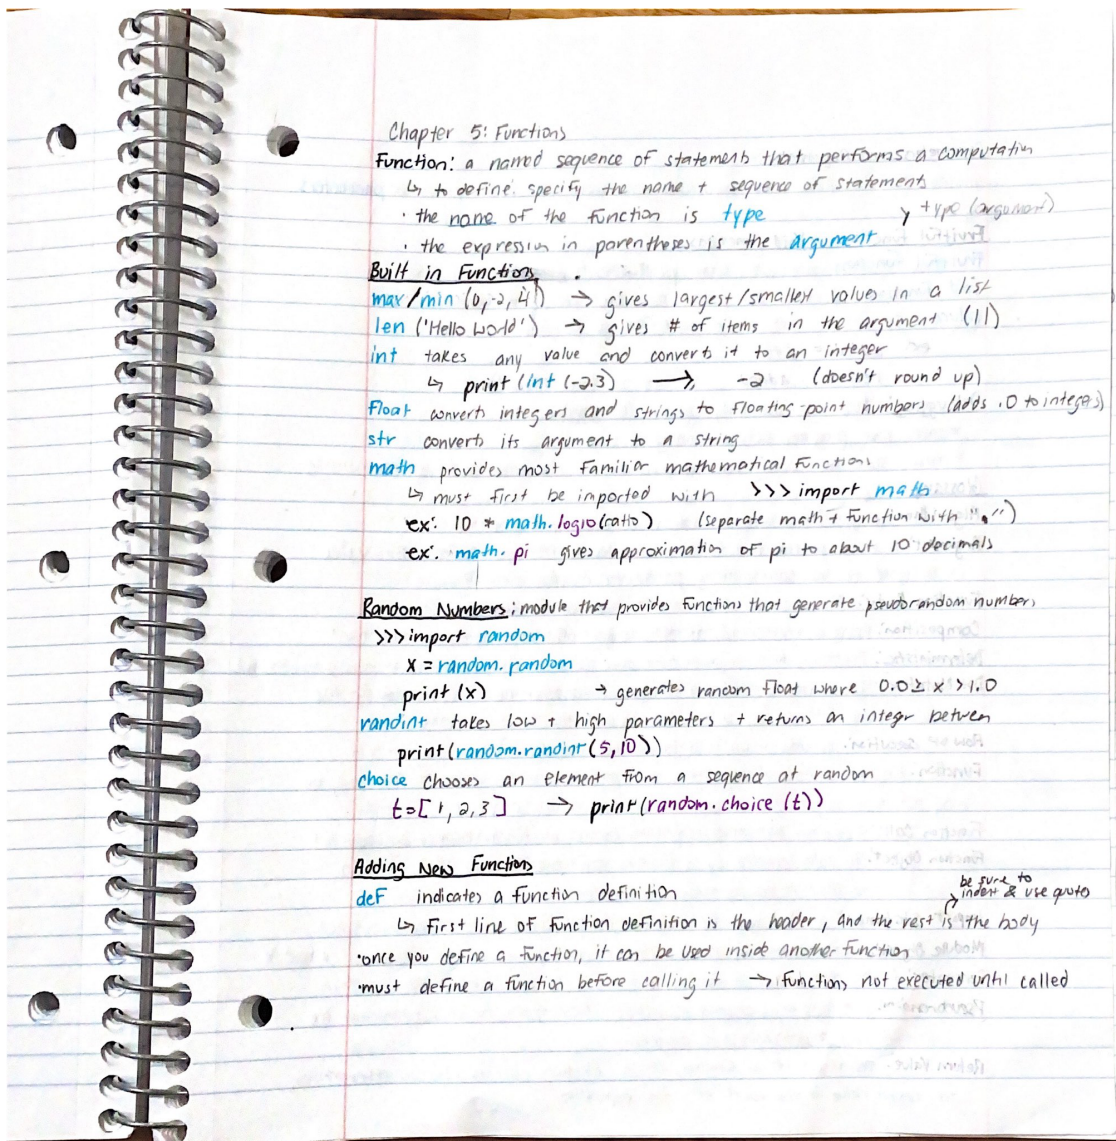 Chapter 5: Functions
Function: a named sequence of statements that performs a computation
↳ to define: specify the name + sequence of statements
· the name of the function is type
↘ type (argument)
· the expression in parentheses is the argument
Built in Functions
max/min (0,-2,4) → gives largest/smallest values in a list
len ('Hello world') → gives # of items in the argument (11)
int takes any value and converts it to an integer
↳ print (int (-2.3) → -2 (doesn't round up)
float converts integers and strings to floating-point numbers (adds .0 to integers)
str converts its argument to a string
math provides most familiar mathematical functions
↳ must first be imported with >>> import math
ex: 10 * math.log10(ratio) (separate math + function with ".")
ex: math.pi gives approximation of pi to about 10 decimals
Random Numbers: module that provides functions that generate pseudorandom numbers
>>> import random
x = random.random
print (x) → generates random float where 0.0 ≥ x > 1.0
randint takes low + high parameters + returns an integr between
print(random.randint(5,10))
choice chooses an element from a sequence at random
t=[1,2,3] → print(random.choice (t))
Adding New Functions
be sure to
indent & use quots
def indicates a function definition
↳ First line of function definition is the header, and the rest is the body
·once you define a function, it can be used inside another function
·must define a function before calling it → functions not executed until called